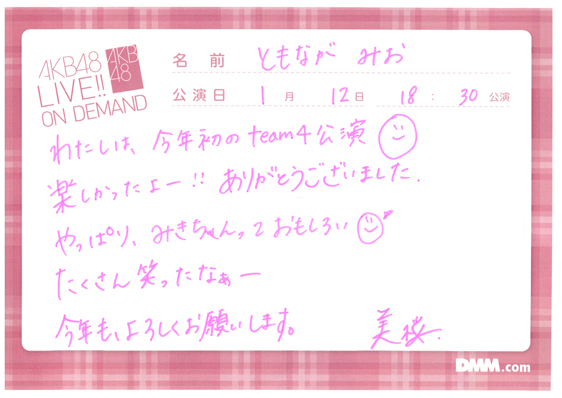 AKB48
LIVE!!
ON DEMAND
AKB
48
名 前 ともなが みお
公演日 1 月 12 日 18 : 30 公演
わたしは、今年初のteam4公演
楽しかったよー!! ありがとうございました.
やっぱり、みきちゃんっておもしろい
たくさん笑ったなぁー
今年も、よろしくお願いします。
美桜.
DMM.com